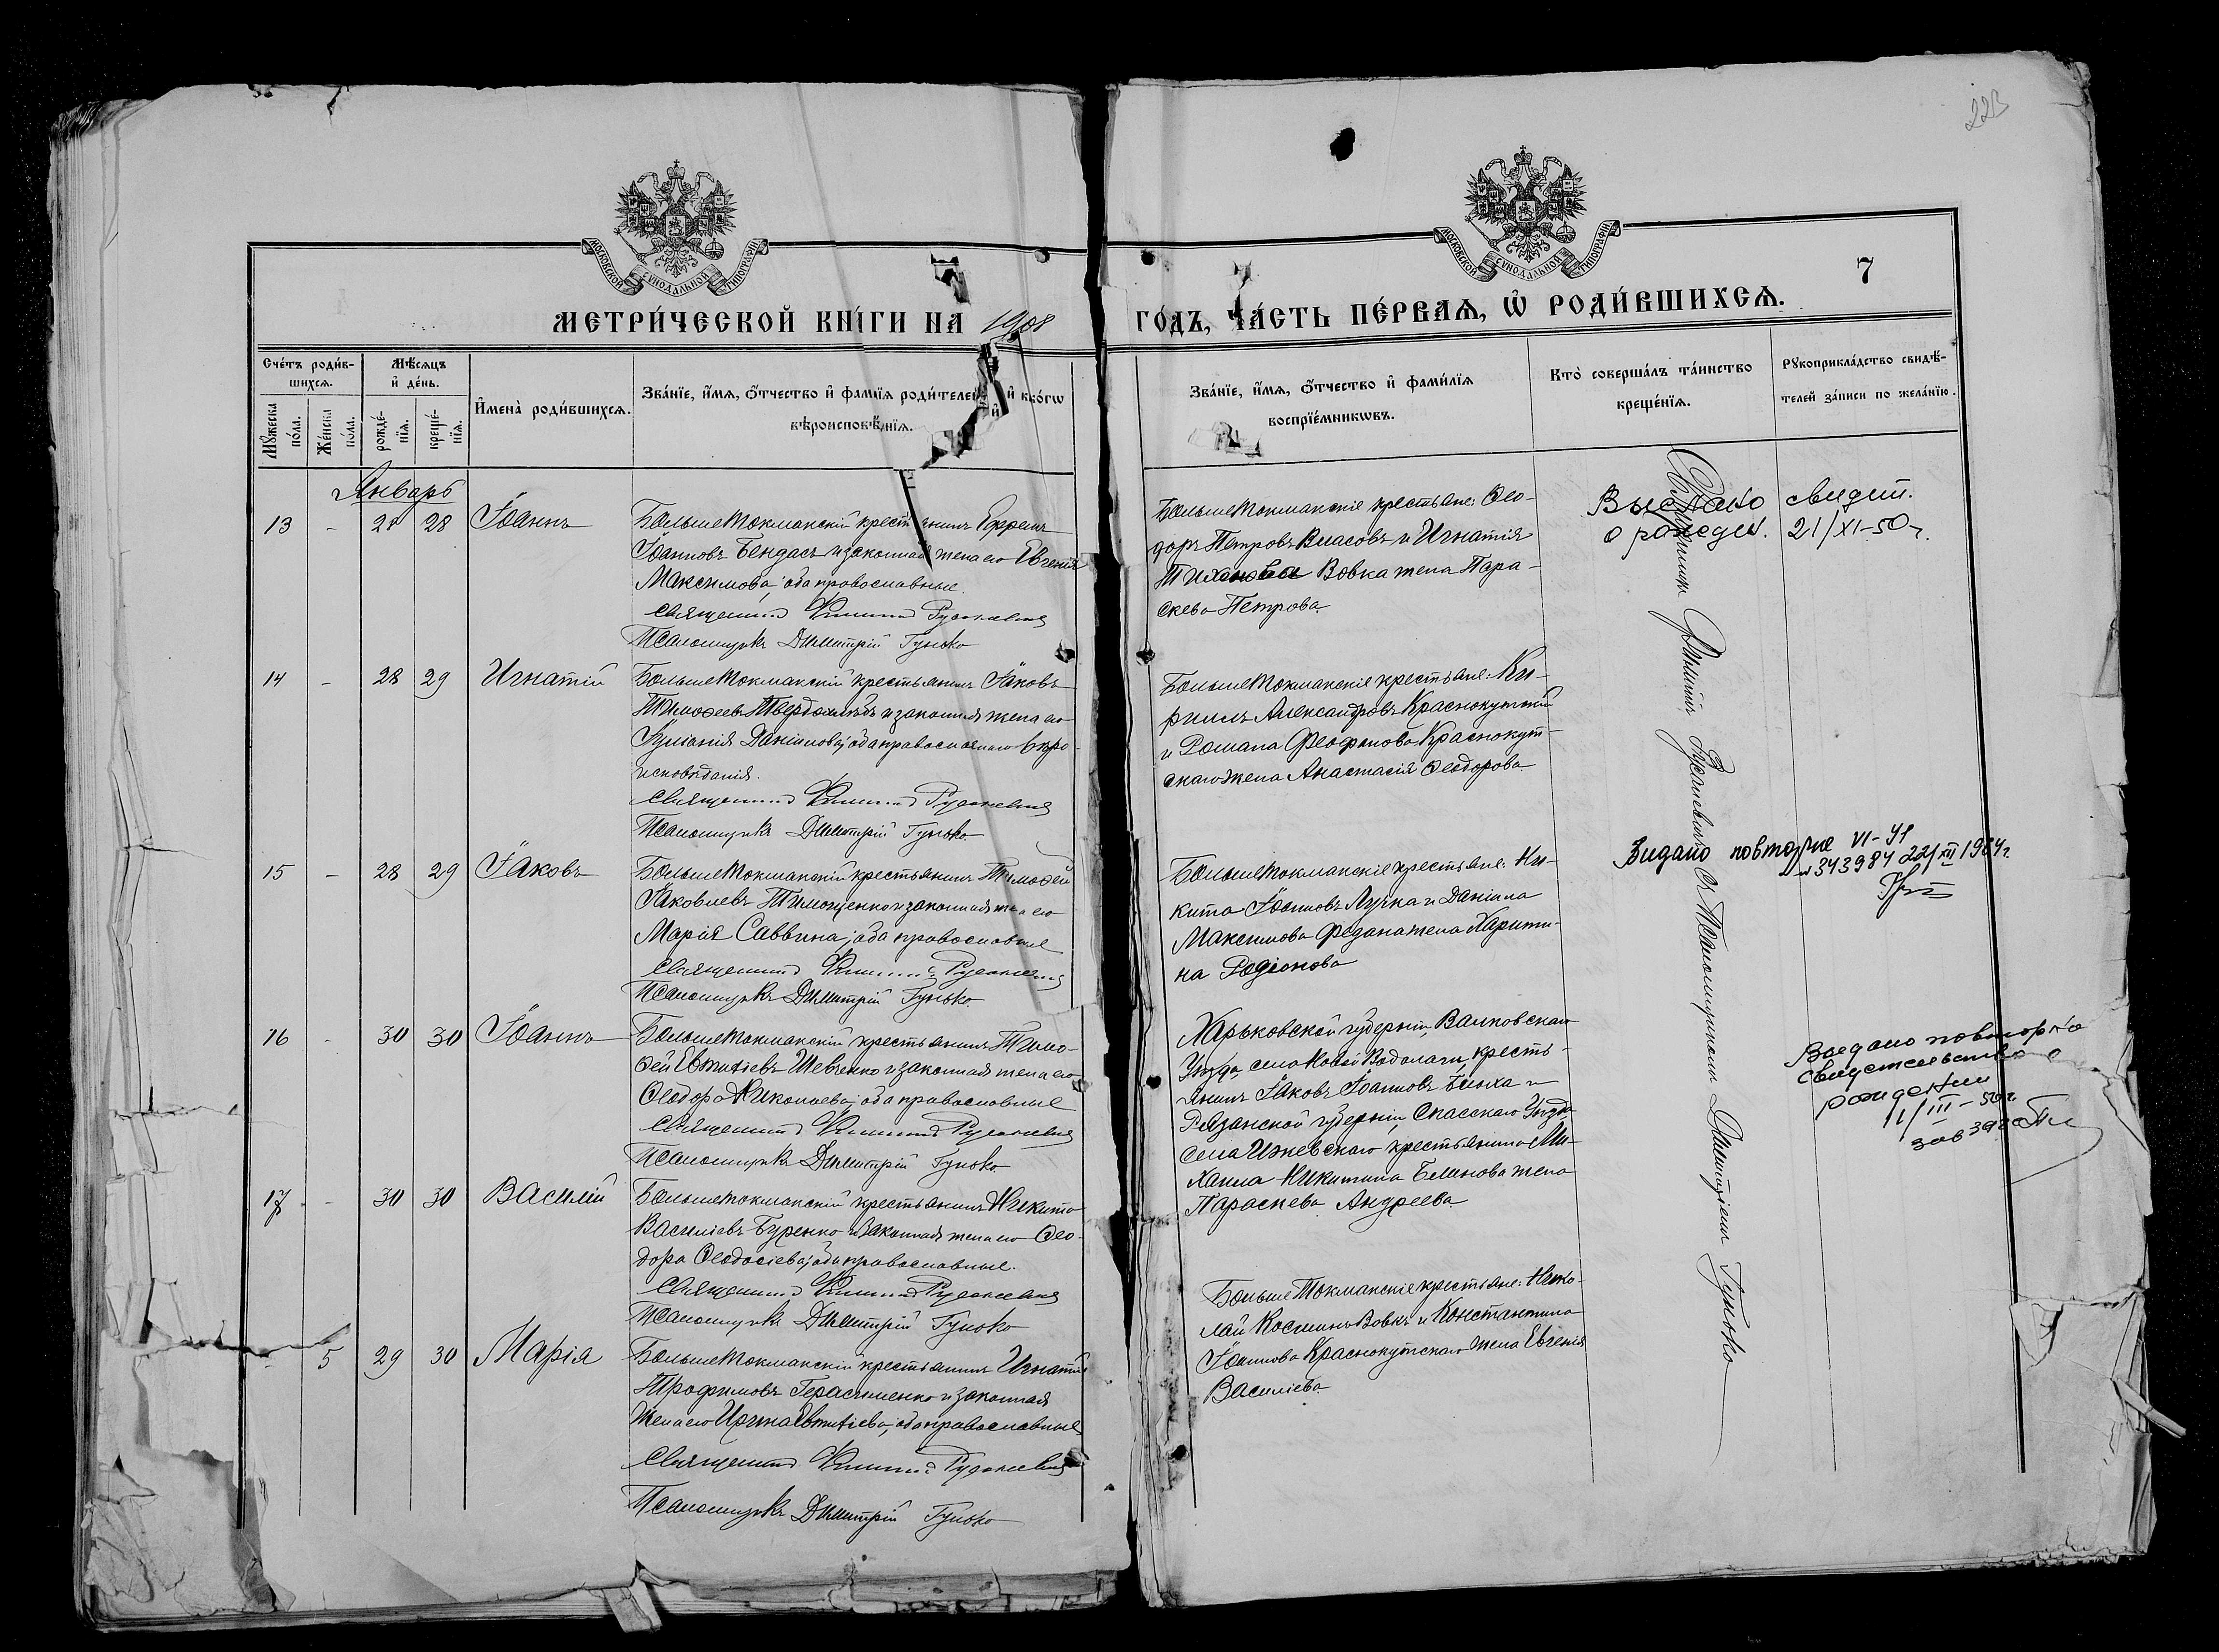 223
МОСКОВСКОЙ СУНОДАЛЬНОЙ ТИПОГРАФІИ
МОСКОВСКОЙ СУНОДАЛЬНОЙ ТИПОГРАФІИ
7
МЕТРИ́ЧЕСКОЙ КНИ́ГИ НА 1908 ГО́ДЪ, ЧА́СТЬ ПЕ́РВАЯ, Ѡ РОДИ́ВШИХСЯ.
Сче́тъ роди́в-
шихся.
Мꙋжеска по́ла.
Же́нска по́ла.
Мѣ́сяцъ
и де́нь.
рожде́-
нїя.
креще́-
нїя.
Имена̀ роди́вшихся.
Зва́нїе, и́мя, о́тчество и фами́лїя роди́телей, и ко́гѡ
вѣроисповѣ́данїя.
Зва́нїе, и́мя, о́тчество и фами́лїя
воспрїе́мникѡвъ.
Кто̀ соверша́лъ та́инство
креще́нїя.
Рꙋкоприкла́дство свидѣ́-
телей за́писи по жела́нїю.
Январь
13 - 28 28 Іоаннъ
Больше Токмакскій крестьянинъ Ефремъ
Іоанновъ Бендасъ и законная жена его Евгенія
Максимова; оба православные.
Священникъ Филиппъ
Псаломщикъ Димитрій Гунько
Больше Токмакскіе крестьяне: Ѳео-
доръ Петровъ Власовъ и Игнатія
Тихонова Вовка жена Пара-
скева Петрова.
Выслано свидет.
о рожден. 21/XI-50 г.
14 - 28 29 Игнатій
Больше Токмакскій крестьянинъ Іаковъ
Тимоѳеевъ и законная жена его
Іуліанія Даніилова; оба православнаго вѣро-
исповѣданія.
Священникъ Филиппъ
Псаломщикъ Димитрій Гунько
Больше Токмакскіе крестьяне: Ки-
риллъ Александровъ Краснокутскій
и Романа Феофанова Краснокут-
скаго жена Анастасія Ѳеодорова.
15 - 28 29 Іаковъ
Больше Токмакскій крестьянинъ Тимоѳей
Іаковлевъ Тимощенко и законная жена его
Марія Саввина; оба православные
Священникъ Филиппъ
Псаломщикъ Димитрій Гунько
Больше Токмакскіе крестьяне: Ни-
кита Іоанновъ Лучка и Даніила
Максимова жена Харити-
на Родіонова
Видано повторне VI-
№ 343984 22/XII 1984 г.
16 - 30 30 Іоаннъ
Больше Токмакскій крестьянинъ Тимо-
ѳей Евтихіевъ Шевченко и законная жена его
Ѳеодора Николаева; оба православные
Священникъ Филиппъ
Псаломщикъ Димитрій Гунько
Харьковской губерніи, Валковскаго
уѣзда, села Новой Водолаги, кресть-
янинъ Іаковъ Іоанновъ и
Рязанской губерніи, Спасскаго уѣзда,
села Ижевскаго крестьянина Ми-
хаила Никитина жена
Параскева Андреева.
Выдано повторно
свидетельство о
рождении
1/III-50 г.
зав загс
17 - 30 30 Василій
Больше Токмакскій крестьянинъ Никита
Василіевъ Буренко и законная жена его Ѳео-
дора Ѳеодосіева; оба православные.
Священникъ Филиппъ
Псаломщикъ Димитрій Гунько
Больше Токмакскіе крестьяне: Нико-
лай Косминъ Вовкъ и Константина
Іоаннова Краснокутскаго жена Евгенія
Василіева.
- 5 29 30 Марія
Больше Токмакскій крестьянинъ Игнатій
Трофимовъ Герасименко и законная
жена его Ирина Евтихіева, оба православные
Священникъ Филиппъ
Псаломщикъ Димитрій Гунько
Священникъ Филиппъ съ Псаломщикомъ Димитріемъ Гунько